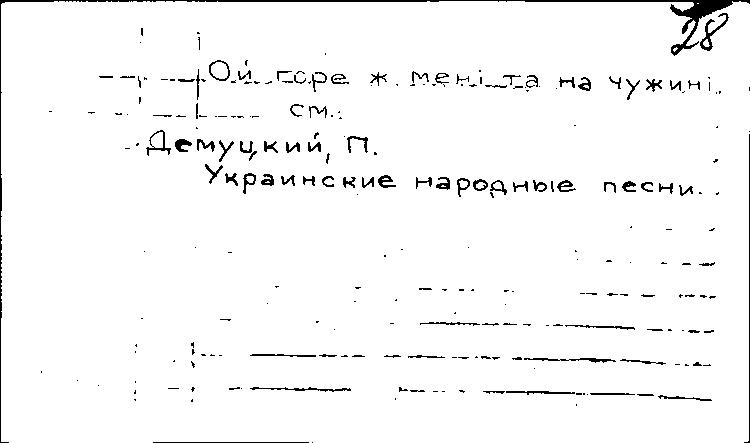 28
Ой горе ж мені та на чужині.
см.:
Демуцкий, П.
Украинские народные песни.